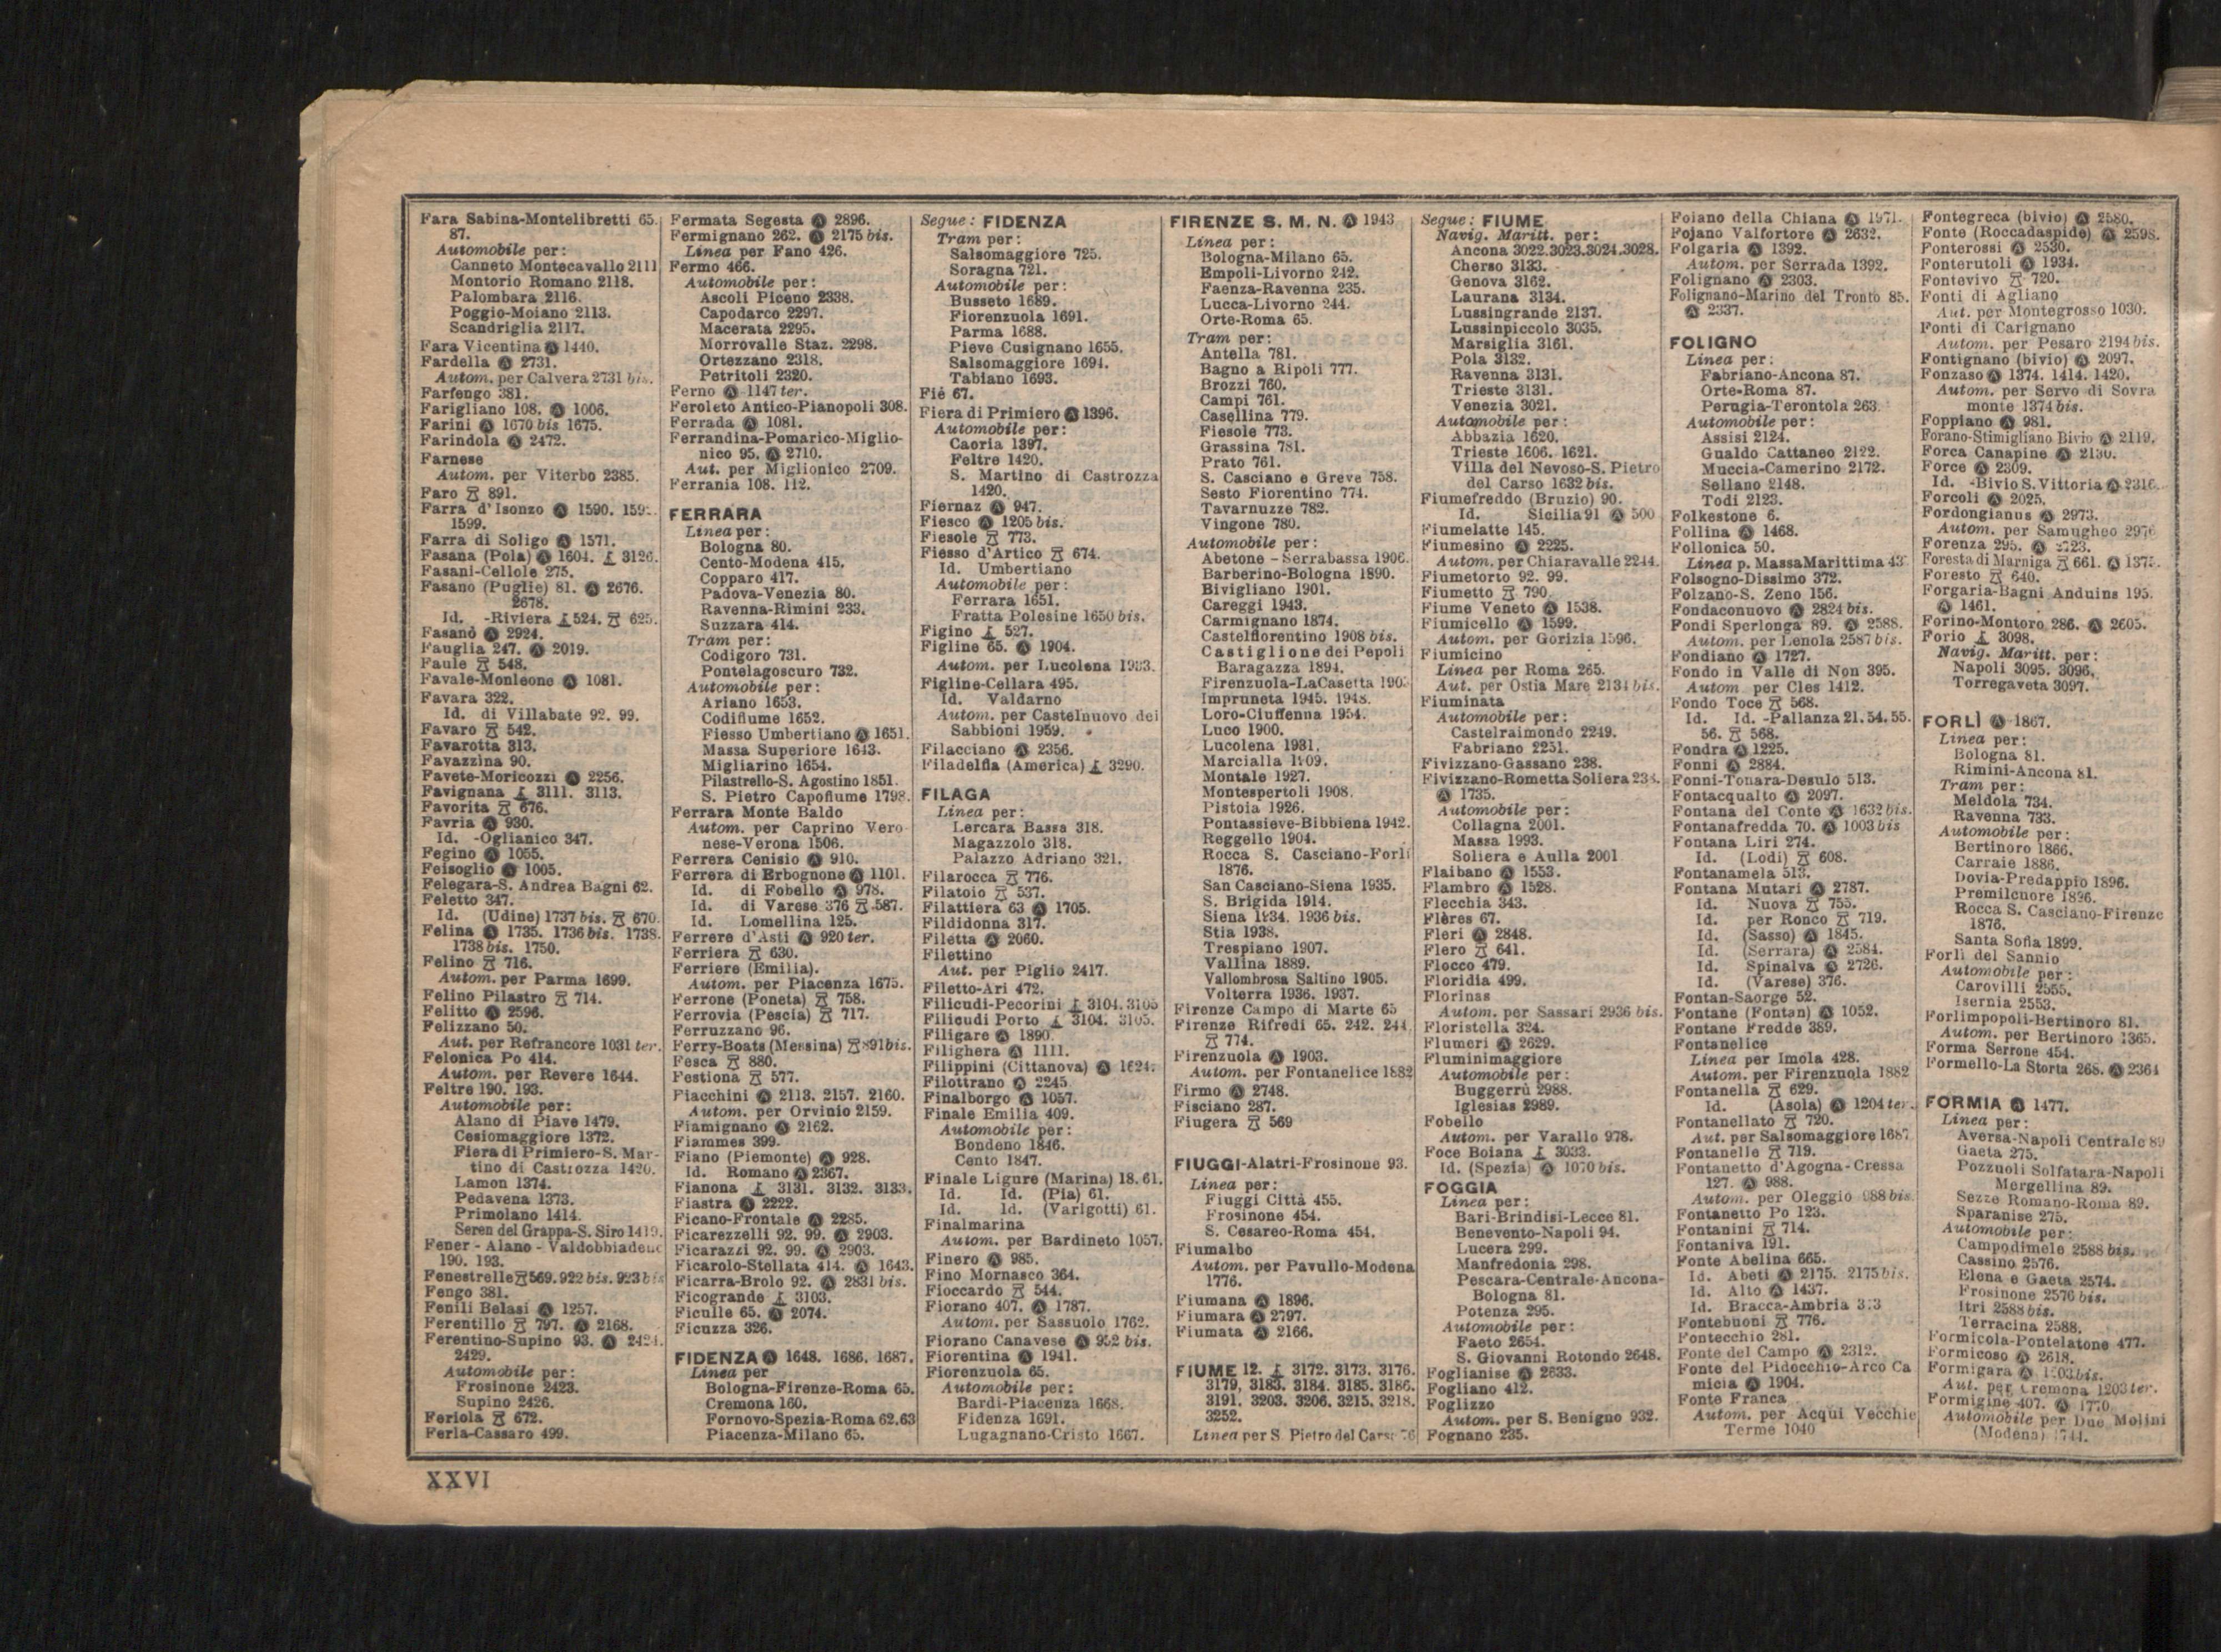 Fara Sabina-Montelibretti 65.
87.
Automobile per:
Canneto Montecavallo 2111
Montorio Romano 2118.
Palombara 2116.
Poggio-Moiano 2113.
Scandriglia 2117.
Fara Vicentina Ⓐ 1440.
Fardella Ⓐ 2731.
Autom. per Calvera 2731 bis.
Farfengo 381.
Farigliano 108. Ⓐ 1006.
Farini Ⓐ 1670 bis 1675.
Farindola Ⓐ 2472.
Farnese
Autom. per Viterbo 2385.
Faro 891.
Farra d'Isonzo Ⓐ 1590.
1599.
Farra di Soligo Ⓐ 1571.
Fasana (Pola) Ⓐ 1604. 3126.
Fasani-Cellole 275.
Fasano (Puglie) 81. Ⓐ 2676.
2678.
Id. -Riviera 524. 625.
Fasanò Ⓐ 2924.
Fauglia 247. Ⓐ 2019.
Faule 548.
Favale-Monleone Ⓐ 1081.
Favara 322.
Id. di Villabate 92. 99.
Favaro 542.
Favarotta 313.
Favazzina 90.
Favete-Moricozzi Ⓐ 2256.
Favignana 3111. 3113.
Favorita 676.
Favria Ⓐ 930.
Id. -Oglianico 347.
Fegino Ⓐ 1055.
Feisoglio Ⓐ 1005.
Felegara-S. Andrea Bagni 62.
Feletto 347.
Id. (Udine) 1737 bis. 670.
Felina Ⓐ 1735. 1736 bis. 1738.
1738 bis. 1750.
Felino 716.
Autom. per Parma 1699.
Felino Pilastro 714.
Felitto Ⓐ 2596.
Felizzano 50.
Aut. per Refrancore 1031 ter.
Felonica Po 414.
Autom. per Revere 1644.
Feltre 190. 193.
Automobile per:
Alano di Piave 1479.
Cesiomaggiore 1372.
Fiera di Primiero-S. Mar-
tino di Castrozza 1420.
Lamon 1374.
Pedavena 1373.
Primolano 1414.
Seren del Grappa-S. Siro 1419.
Fener - Alano - Valdobbiadene
190. 193.
Fenestrelle 569. 922 bis. 923 bis
Fengo 381.
Fenili Belasi Ⓐ 1257.
Ferentillo 797. Ⓐ 2168.
Ferentino-Supino 93. Ⓐ 2424.
2429.
Automobile per:
Frosinone 2423.
Supino 2426.
Feriola 672.
Ferla-Cassaro 499.
Fermata Segesta Ⓐ 2896.
Fermignano 262. Ⓐ 2175 bis.
Linea per Fano 426.
Fermo 466.
Automobile per:
Ascoli Piceno 2338.
Capodarco 2297.
Macerata 2295.
Morrovalle Staz. 2298.
Ortezzano 2318.
Petritoli 2320.
Ferno Ⓐ 1147 ter.
Feroleto Antico-Pianopoli 308.
Ferrada Ⓐ 1081.
Ferrandina-Pomarico-Miglio-
nico 95. Ⓐ 2710.
Aut. per Miglionico 2709.
Ferrania 108. 112.
FERRARA
Linea per:
Bologna 80.
Cento-Modena 415.
Copparo 417.
Padova-Venezia 80.
Ravenna-Rimini 233.
Suzzara 414.
Tram per:
Codigoro 731.
Pontelagoscuro 732.
Automobile per:
Ariano 1653.
Codifiume 1652.
Fiesso Umbertiano Ⓐ 1651.
Massa Superiore 1643.
Migliarino 1654.
Pilastrello-S. Agostino 1851.
S. Pietro Capofiume 1798.
Ferrara Monte Baldo
Autom. per Caprino Vero
nese-Verona 1506.
Ferrera Cenisio Ⓐ 910.
Ferrera di Erbognone Ⓐ 1101.
Id. di Fobello Ⓐ 978.
Id. di Varese 376 587.
Id. Lomellina 125.
Ferrere d'Asti Ⓐ 920 ter.
Ferriera 630.
Ferriere (Emilia).
Autom. per Piacenza 1675.
Ferrone (Poneta) 758.
Ferrovia (Pescia) 717.
Ferruzzano 96.
Ferry-Boats (Messina) 891 bis.
Fesca 880.
Festiona 577.
Fiacchini Ⓐ 2113. 2157. 2160.
Autom. per Orvinio 2159.
Fiamignano Ⓐ 2162.
Fiammes 399.
Fiano (Piemonte) Ⓐ 928.
Id. Romano Ⓐ 2367.
Fianona 3131. 3132. 3133.
Fiastra Ⓐ 2222.
Ficano-Frontale Ⓐ 2285.
Ficarezzelli 92. 99. Ⓐ 2903.
Ficarazzi 92. 99. Ⓐ 2903.
Ficarolo-Stellata 414. Ⓐ 1643.
Ficarra-Brolo 92. Ⓐ 2831 bis.
Ficogrande 3103.
Ficulle 65. Ⓐ 2074.
Ficuzza 326.
FIDENZA Ⓐ 1648. 1686. 1687.
Linea per
Bologna-Firenze-Roma 65.
Cremona 160.
Fornovo-Spezia-Roma 62.63
Piacenza-Milano 65.
Segue: FIDENZA
Tram per:
Salsomaggiore 725.
Soragna 721.
Automobile per:
Busseto 1689.
Fiorenzuola 1691.
Parma 1688.
Pieve Cusignano 1655.
Salsomaggiore 1694.
Tabiano 1693.
Fié 67.
Fiera di Primiero Ⓐ 1396.
Automobile per:
Caoria 1397.
Feltre 1420.
S. Martino di Castrozza
1420.
Fiernaz Ⓐ 947.
Fiesco Ⓐ 1205 bis.
Fiesole 773.
Fiesso d'Artico 674.
Id. Umbertiano
Automobile per:
Ferrara 1651.
Fratta Polesine 1650 bis.
Figino 527.
Figline 65. Ⓐ 1904.
Autom. per Lucolena 1933.
Figline-Cellara 495.
Id. Valdarno
Autom. per Castelnuovo dei
Sabbioni 1959.
Filacciano Ⓐ 2356.
Filadelfia (America) 3290.
FILAGA
Linea per:
Lercara Bassa 318.
Magazzolo 318.
Palazzo Adriano 321.
Filarocca 776.
Filatoio 537.
Filattiera 63 Ⓐ 1705.
Fildidonna 317.
Filetta Ⓐ 2060.
Filettino
Aut. per Piglio 2417.
Filetto-Ari 472.
Filicudi-Pecorini 3104. 3105
Filicudi Porto 3104. 3105.
Filigare Ⓐ 1890.
Filighera Ⓐ 1111.
Filippini (Cittanova) Ⓐ 1624.
Filottrano Ⓐ 2245
Finalborgo Ⓐ 1057.
Finale Emilia 409.
Automobile per:
Bondeno 1846.
Cento 1847.
Finale Ligure (Marina) 18. 61.
Id. Id. (Pia) 61.
Id. Id. (Varigotti) 61.
Finalmarina
Autom. per Bardineto 1057.
Finero Ⓐ 985.
Fino Mornasco 364.
Fioccardo 544.
Fiorano 407. Ⓐ 1787.
Autom. per Sassuolo 1762.
Fiorano Canavese Ⓐ 952 bis.
Fiorentina Ⓐ 1941.
Fiorenzuola 65.
Automobile per:
Bardi-Piacenza 1668.
Fidenza 1691.
Lugagnano-Cristo 1667.
FIRENZE S. M. N. Ⓐ 1943
Linea per:
Bologna-Milano 65.
Empoli-Livorno 242.
Faenza-Ravenna 235.
Lucca-Livorno 244.
Orte-Roma 65.
Tram per:
Antella 781.
Bagno a Ripoli 777.
Brozzi 760.
Campi 761.
Casellina 779.
Fiesole 773.
Grassina 781.
Prato 761.
S. Casciano e Greve 758.
Sesto Fiorentino 774.
Tavarnuzze 782.
Vingone 780.
Automobile per:
Abetone - Serrabassa 1906.
Barberino-Bologna 1890.
Bivigliano 1901.
Careggi 1943.
Carmignano 1874.
Castelfiorentino 1908 bis.
Castiglione dei Pepoli
Baragazza 1894.
Firenzuola-LaCasetta
Impruneta 1945. 1948.
Loro-Ciuffenna 1954.
Luco 1900.
Lucolena 1931.
Marcialla 1909.
Montale 1927.
Montespertoli 1908.
Pistoia 1926.
Pontassieve-Bibbiena 1942.
Reggello 1904.
Rocca S. Casciano-Forlì
1876.
San Casciano-Siena 1935.
S. Brigida 1914.
Siena 1934. 1936 bis.
Stia 1938.
Trespiano 1907.
Vallina 1889.
Vallombrosa Saltino 1905.
Volterra 1936. 1937.
Firenze Campo di Marte 65
Firenze Rifredi 65. 242. 244.
774.
Firenzuola Ⓐ 1903.
Autom. per Fontanelice 1882
Firmo Ⓐ 2748.
Fisciano 287.
Fiugera 569
FIUGGI-Alatri-Frosinone 93.
Linea per:
Fiuggi Città 455.
Frosinone 454.
S. Cesareo-Roma 454.
Fiumalbo
Autom. per Pavullo-Modena
1776.
Fiumana Ⓐ 1896.
Fiumara Ⓐ 2797.
Fiumata Ⓐ 2166.
FIUME 12. 3172. 3173. 3176.
3179, 3183. 3184. 3185. 3186.
3191. 3203. 3206. 3215. 3218.
3252.
Linea per S. Pietro del Carso 76
Segue: FIUME
Navig. Maritt. per:
Ancona 3022.3023.3024.3028.
Cherso 3133.
Genova 3162.
Laurana 3134.
Lussingrande 2137.
Lussinpiccolo 3035.
Marsiglia 3161.
Pola 3132.
Ravenna 3131.
Trieste 3131.
Venezia 3021.
Automobile per:
Abbazia 1620.
Trieste 1606. 1621.
Villa del Nevoso-S. Pietro
del Carso 1632 bis.
Fiumefreddo (Bruzio) 90.
Id. Sicilia 91 Ⓐ 500
Fiumelatte 145.
Fiumesino Ⓐ 2225.
Autom. per Chiaravalle 2244.
Fiumetorto 92. 99.
Fiumetto 790.
Fiume Veneto Ⓐ 1538.
Fiumicello Ⓐ 1599.
Autom. per Gorizia 1596.
Fiumicino
Linea per Roma 265.
Aut. per Ostia Mare 2134 bis.
Fiuminata
Automobile per:
Castelraimondo 2249.
Fabriano 2251.
Fivizzano-Gassano 238.
Fivizzano-Rometta Soliera 238.
Ⓐ 1735.
Automobile per:
Collagna 2001.
Massa 1993.
Soliera e Aulla 2001
Flaibano Ⓐ 1553.
Flambro Ⓐ 1528.
Flecchia 343.
Flères 67.
Fleri Ⓐ 2848.
Flero 641.
Flocco 479.
Floridia 499.
Florinas
Autom. per Sassari 2936 bis.
Floristella 324.
Flumeri Ⓐ 2629.
Fluminimaggiore
Automobile per:
Buggerrù 2988.
Iglesias 2989.
Fobello
Autom. per Varallo 978.
Foce Boiana 3033.
Id. (Spezia) Ⓐ 1070 bis.
FOGGIA
Linea per:
Bari-Brindisi-Lecce 81.
Benevento-Napoli 94.
Lucera 299.
Manfredonia 298.
Pescara-Centrale-Ancona-
Bologna 81.
Potenza 295.
Automobile per:
Faeto 2654.
S. Giovanni Rotondo 2648.
Foglianise Ⓐ 2633.
Fogliano 412.
Foglizzo
Autom. per S. Benigno 932.
Fognano 235.
Foiano della Chiana Ⓐ 1971.
Fojano Valfortore Ⓐ 2632.
Folgaria Ⓐ 1392.
Autom. per Serrada 1392.
Folignano Ⓐ 2303.
Folignano-Marino del Tronto 85.
Ⓐ 2337.
FOLIGNO
Linea per:
Fabriano-Ancona 87.
Orte-Roma 87.
Perugia-Terontola 263.
Automobile per:
Assisi 2124.
Gualdo Cattaneo 2122.
Muccia-Camerino 2172.
Sellano 2148.
Todi 2123.
Folkestone 6.
Follina Ⓐ 1468.
Follonica 50.
Linea p. MassaMarittima
Folsogno-Dissimo 372.
Folzano-S. Zeno 156.
Fondaconuovo Ⓐ 2824 bis.
Fondi Sperlonga 89. Ⓐ 2588.
Autom. per Lenola 2587 bis.
Fondiano Ⓐ 1727.
Fondo in Valle di Non 395.
Autom per Cles 1412.
Fondo Toce 568.
Id. Id. -Pallanza 21. 54. 55.
56. 568.
Fondra Ⓐ 1225.
Fonni Ⓐ 2884.
Fonni-Tonara-Desulo 513.
Fontacqualto Ⓐ 2097.
Fontana del Conte Ⓐ 1632 bis.
Fontanafredda 70. Ⓐ 1003 bis
Fontana Liri 274.
Id. (Lodi) 608.
Fontanamela 513.
Fontana Mutari Ⓐ 2787.
Id. Nuova 755.
Id. per Ronco 719.
Id. (Sasso) Ⓐ 1845.
Id. (Serrara) Ⓐ 2584.
Id. Spinalva Ⓐ 2726.
Id. (Varese) 376.
Fontan-Saorge 52.
Fontane (Fontan) Ⓐ 1052.
Fontane Fredde 389.
Fontanelice
Linea per Imola 428.
Autom. per Firenzuola 1882
Fontanella 629.
Id. (Asola) Ⓐ 1204 ter.
Fontanellato 720.
Aut. per Salsomaggiore 1687
Fontanelle 719.
Fontanetto d'Agogna-Cressa
127. Ⓐ 988.
Autom. per Oleggio 988 bis.
Fontanetto Po 123.
Fontanini 714.
Fontaniva 191.
Fonte Abelina 665.
Id. Abeti Ⓐ 2175. 2175 bis.
Id. Alto Ⓐ 1437.
Id. Bracca-Ambria
Fontebuoni 776.
Fontecchio 281.
Fonte del Campo Ⓐ 2312.
Fonte del Pidocchio-Arco Ca
micia Ⓐ 1904.
Fonte Franca
Autom. per Acqui Vecchie
Terme 1040
Fontegreca (bivio) Ⓐ 2580.
Fonte (Roccadaspide) Ⓐ 2598.
Fonterossi Ⓐ 2530.
Fonterutoli Ⓐ 1934.
Fontevivo 720.
Fonti di Agliano
Aut. per Montegrosso 1030.
Fonti di Carignano
Autom. per Pesaro 2194 bis.
Fontignano (bivio) Ⓐ 2097.
Fonzaso Ⓐ 1374. 1414. 1420.
Autom. per Servo di Sovra
monte 1374 bis.
Foppiano Ⓐ 981.
Forano-Stimigliano Bivio Ⓐ 2119.
Forca Canapine Ⓐ 2130.
Force Ⓐ 2309.
Id. -Bivio S. Vittoria Ⓐ 2316.
Forcoli Ⓐ 2025.
Fordongianus Ⓐ 2973.
Autom. per Samugheo 2976
Forenza 295. Ⓐ 2723.
Foresta di Marniga 661. Ⓐ
Foresto 640.
Forgaria-Bagni Anduins 195.
Ⓐ 1461.
Forino-Montoro 286. Ⓐ 2605.
Forio 3098.
Navig. Maritt. per:
Napoli 3095. 3096.
Torregaveta 3097.
FORLÌ Ⓐ 1867.
Linea per:
Bologna 81.
Rimini-Ancona 81.
Tram per:
Meldola 734.
Ravenna 733.
Automobile per:
Bertinoro 1866.
Carraie 1886.
Dovia-Predappio 1896.
Premilcuore 1896.
Rocca S. Casciano-Firenze
1876.
Santa Sofia 1899.
Forlì del Sannio
Automobile per:
Carovilli 2555.
Isernia 2553.
Forlimpopoli-Bertinoro 81.
Autom. per Bertinoro 1365.
Forma Serrone 454.
Formello-La Storta 268. Ⓐ 2364
FORMIA Ⓐ 1477.
Linea per:
Aversa-Napoli Centrale 89
Gaeta 275.
Pozzuoli Solfatara-Napoli
Mergellina 89.
Sezze Romano-Roma 89.
Sparanise 275.
Automobile per:
Campodimele 2588 bis.
Cassino 2576.
Elena e Gaeta 2574.
Frosinone 2576 bis.
Itri 2588 bis.
Terracina 2588.
Formicola-Pontelatone 477.
Formicoso Ⓐ 2618.
Formigara Ⓐ 1203 bis.
Aut. per Cremona 1203 ter.
Formigine 407. Ⓐ 1770
Automobile per Due Molini
(Modena) 1744.
XXVI